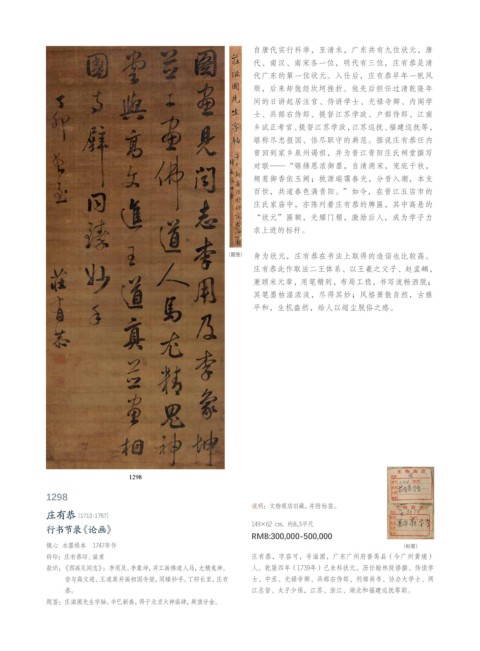 圖畫見聞志李用及李象坤
並工畫佛道人馬尤精鬼神
嘗與高文進王道真並畫相
國寺壁同臻妙手
丁卯長至
莊有恭
(题签)
1298
自唐代实行科举，至清末，广东共有九位状元，唐
代、南汉、南宋各一位，明代有三位，庄有恭是清
代广东的第一位状元。入仕后，庄有恭早年一帆风
顺，后来却饱经坎坷挫折。他先后担任过清乾隆年
间的日讲起居注官、侍讲学士、光禄寺卿、内阁学
士、兵部右侍郎、提督江苏学政、户部侍郎、江南
乡试正考官、提督江苏学政、江苏巡抚、福建巡抚等，
堪称尽忠报国、恪尽职守的典范。据说庄有恭任内
曾回到家乡泉州谒祖，并为晋江青阳庄氏祠堂撰写
对联——
如今，在晋江五店市的
庄氏家庙中，亦陈列着庄有恭的牌匾，其中高悬的
“状元”匾额，光耀门楣，激励后人，成为学子力
求上进的标杆。
身为状元，庄有恭在书法上取得的造诣也比较高。
庄有恭此作取法二王体系、以王羲之父子、赵孟頫，
兼顾米元章，用笔精到，布局工稳，书写流畅洒脱；
其笔墨枯湿浓淡，尽得其妙；风格萧散自然，古雅
平和，生机盎然，给人以超尘脱俗之感。
1298
庄有恭 (1713-1767)
行书节录《论画》
镜心 水墨绢本 1747年作
钤印：庄有恭印、滋圃
款识：《图画见闻志》：李用及、李象坤，并工画佛道人马，尤精鬼神。
尝与高文进、王道真并画相国寺壁，同臻妙手。丁卯长至，庄有
恭。
题签：庄滋圃先生字轴。辛巳新春，得于北京大神庙肆，斯濆分金。
说明：文物商店旧藏，并附标签。
149×62 cm. 约8.3平尺
RMB:300,000-500,000
庄有恭，字容可，号滋圃，广东广州府番禺县（今广州黄埔）
人。乾隆四年（1739年）己未科状元。历任翰林院修撰、侍读学
士、中丞、光禄寺卿、兵部右侍郎、刑部尚书、协办大学士、两
江总督、太子少保，江苏、浙江、湖北和福建巡抚等职。
(标签)